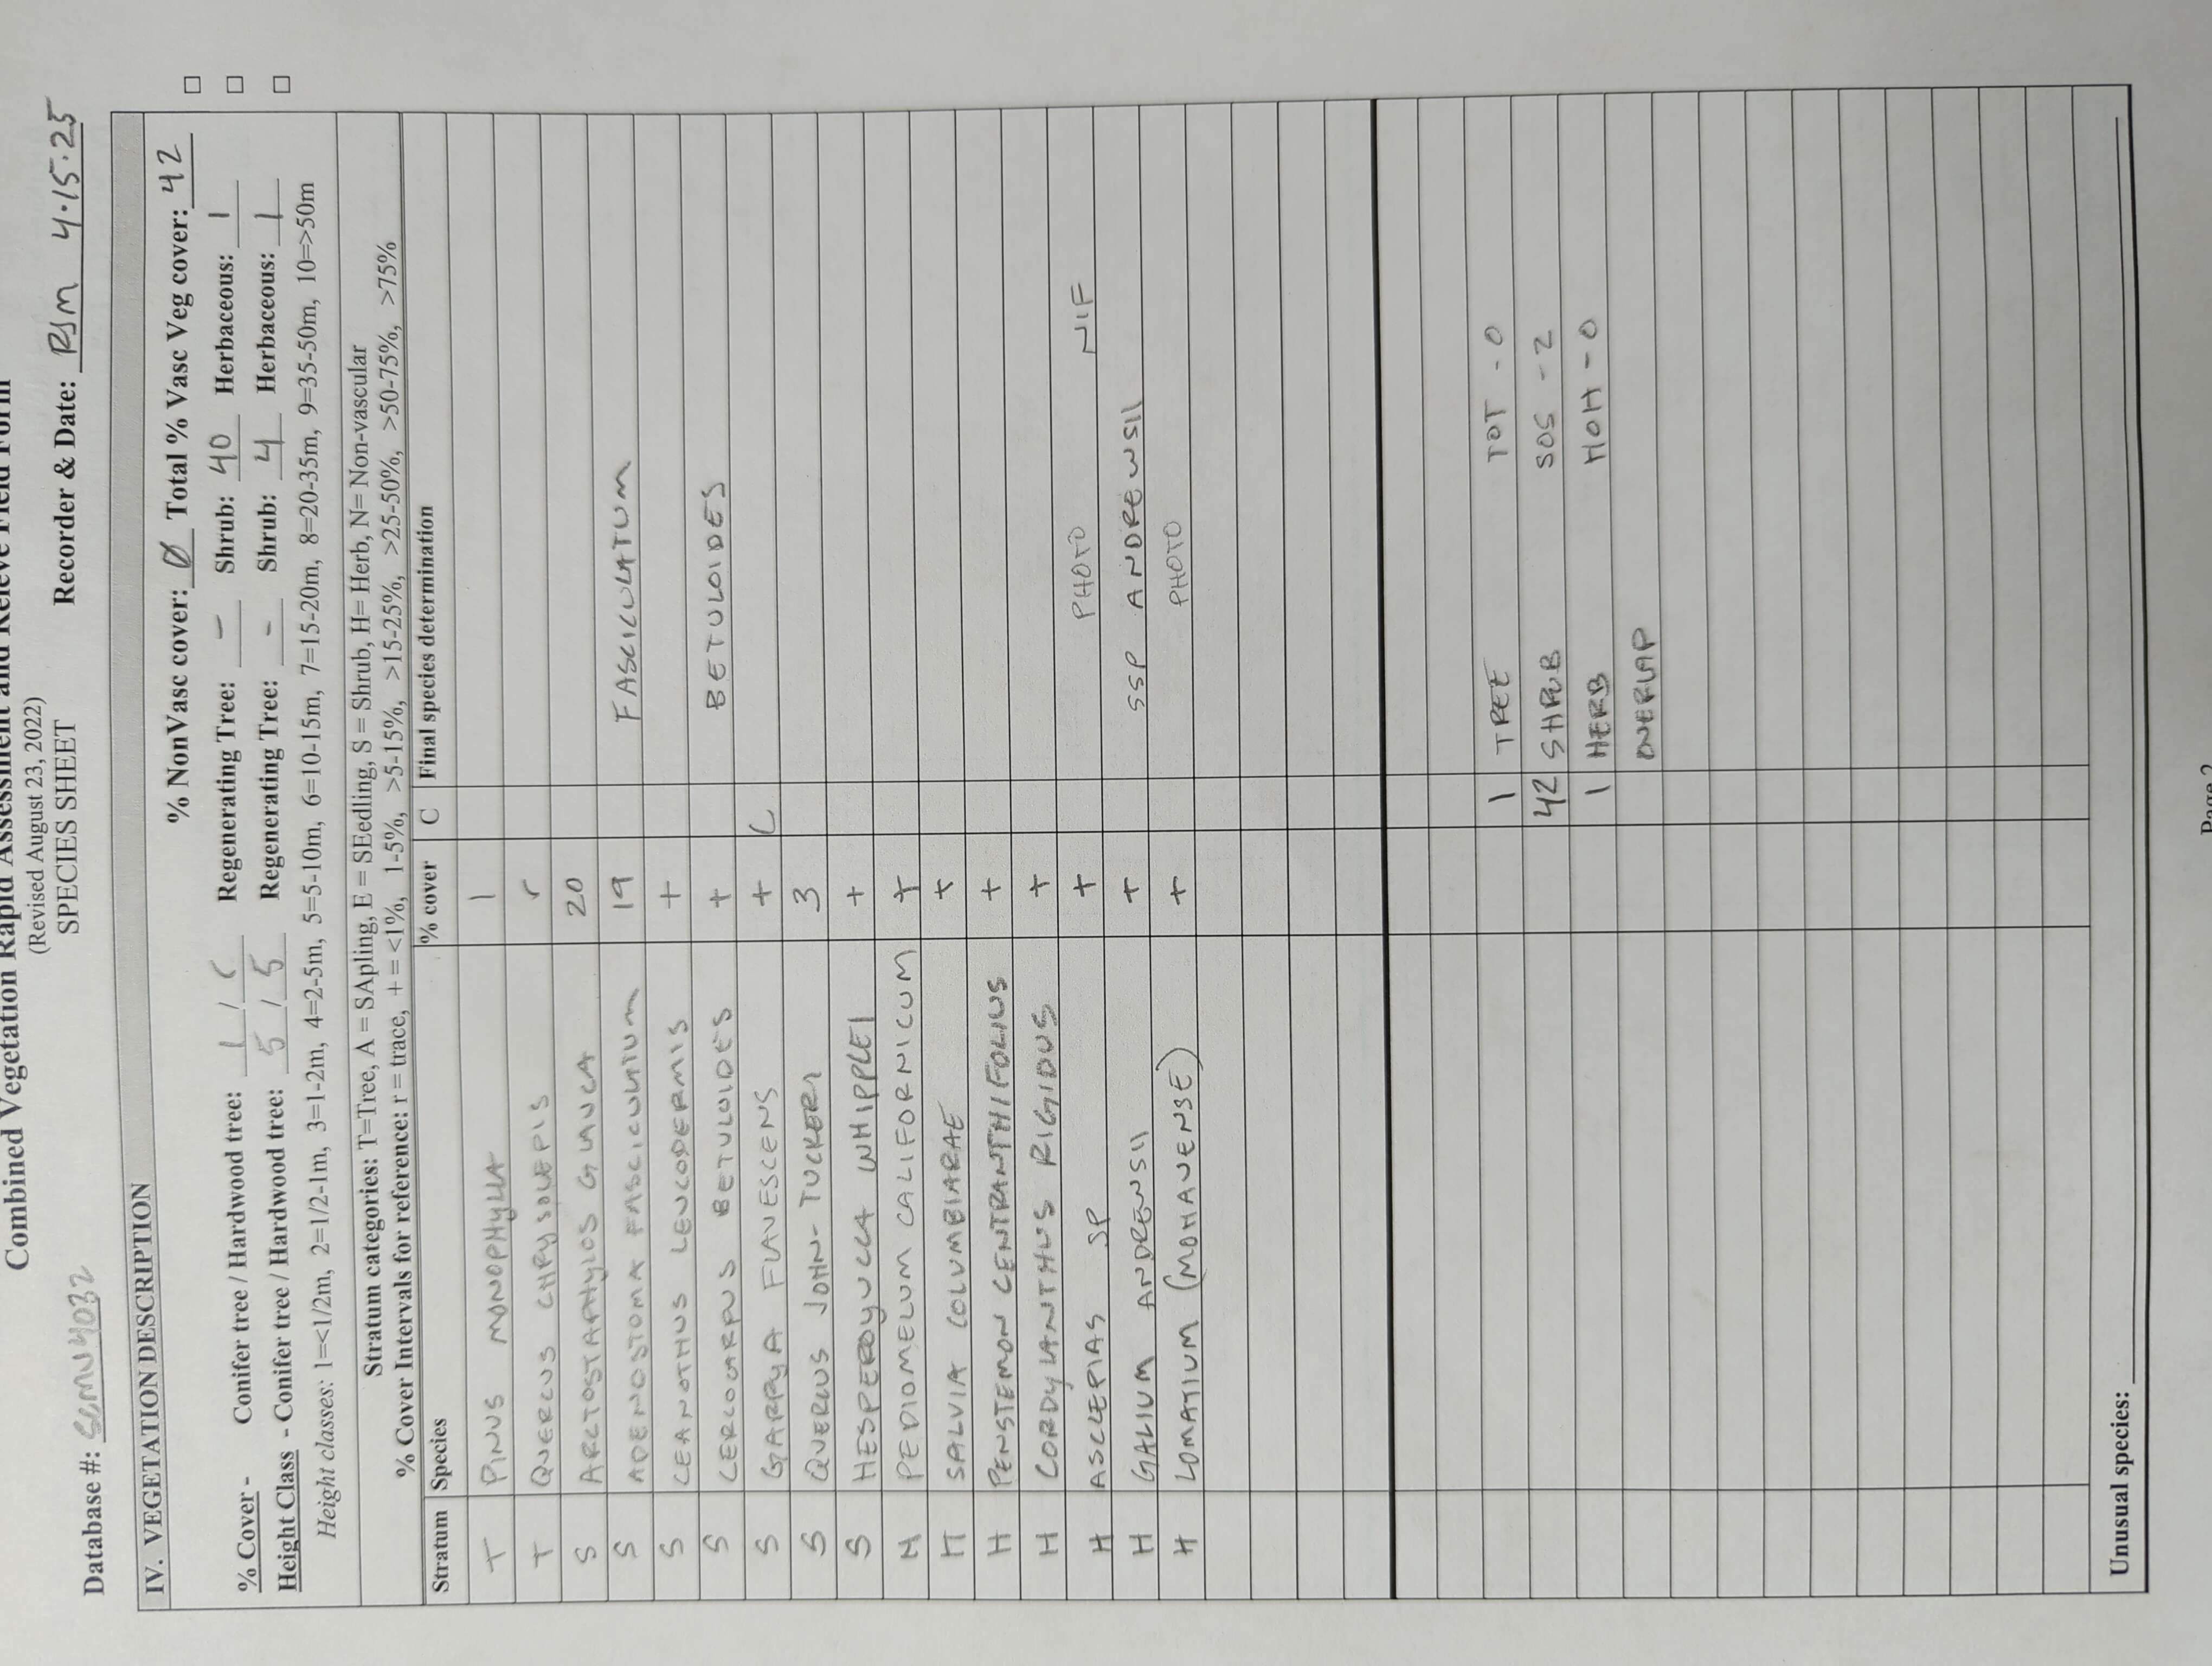 Combined Vegetation Rapid Assessment and Relevé Field Form
(Revised August 23, 2022)
SPECIES SHEET
Database #: Recorder & Date: RJM 4.15.25
IV. VEGETATION DESCRIPTION
% NonVasc cover: Ø Total % Vasc Veg cover: 42 □
% Cover - Conifer tree / Hardwood tree: 1 / r Regenerating Tree: - Shrub: 40 Herbaceous: 1 □
Height Class - Conifer tree / Hardwood tree: 5 / 5 Regenerating Tree: - Shrub: 4 Herbaceous: 1 □
Height classes: 1=<1/2m, 2=1/2-1m, 3=1-2m, 4=2-5m, 5=5-10m, 6=10-15m, 7=15-20m, 8=20-35m, 9=35-50m, 10=>50m
Stratum categories: T=Tree, A = SApling, E = SEedling, S = Shrub, H= Herb, N= Non-vascular
% Cover Intervals for reference: r = trace, + = <1%, 1-5%, >5-15%, >15-25%, >25-50%, >50-75%, >75%
Stratum Species % cover C Final species determination
T PINUS MONOPHYLLA 1
T QUERCUS CHRYSOLEPIS r
S ARCTOSTAPHYLOS GLAUCA 20
S ADENOSTOMA FASCICULATUM 19 FASCICULATUM
S CEANOTHUS LEUCODERMIS +
S CERCOCARPUS BETULOIDES + BETULOIDES
S GARRYA FLAVESCENS + C
S QUERCUS JOHN-TUCKERI 3
S HESPEROYUCCA WHIPPLEI +
H PEDIOMELUM CALIFORNICUM +
H SALVIA COLUMBIARAE +
H PENSTEMON CENTRANTHIFOLIUS +
H CORDYLANTHUS RIGIDUS +
H ASCLEPIAS SP + PHOTO NIF
H GALIUM ANDREWSII + SSP ANDREWSII
H LOMATIUM (MOHAVENSE) + PHOTO
1 TREE TOT - 0
42 SHRUB SOS - 2
1 HERB HOH - 0
OVERLAP
Unusual species:
Page 2